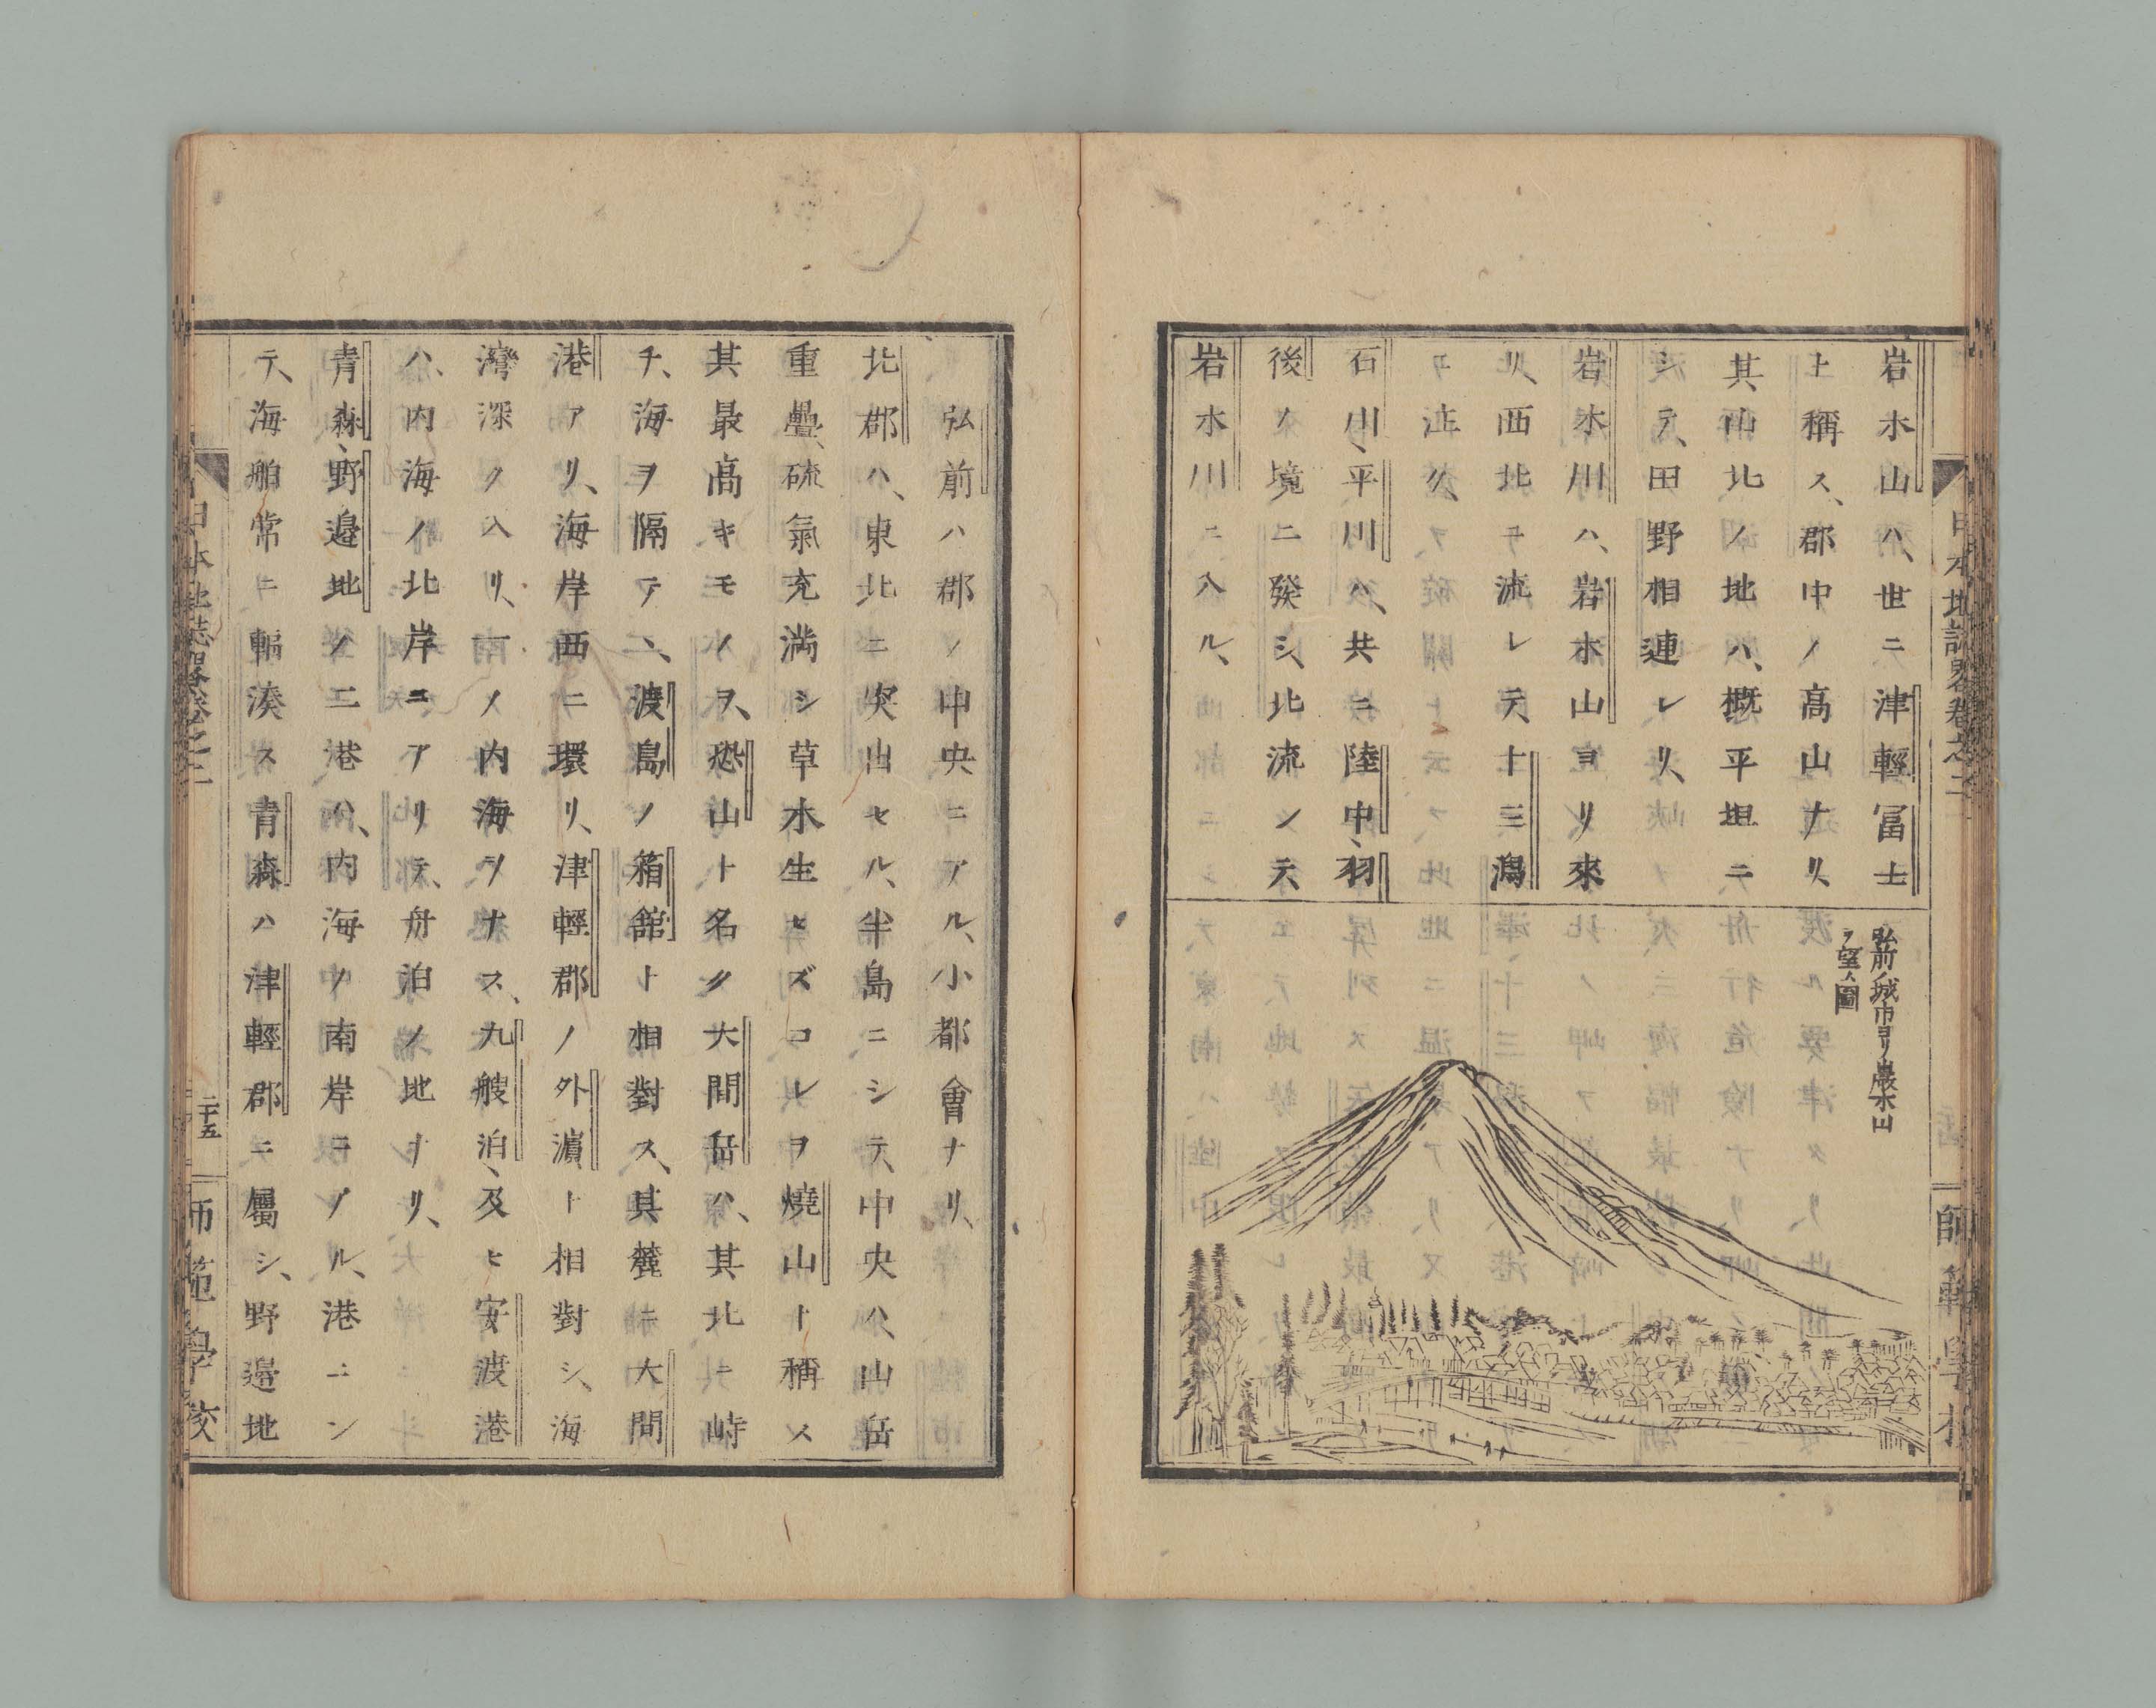 日本地誌畧卷之二
師範學校
岩木山ハ、世ニ津輕冨士
ト稱ス、郡中ノ髙山ナリ、
其山北ノ地ハ、概平坦ニ
シテ、田野相連レリ、
岩木川ハ、岩木山ヨリ來
リ、西北ヲ流レテ、十三潟
ヲ注ク、
石川、平川ハ、共ニ陸中、羽
後ノ境ニ發シ、北流シテ、
岩木川ニ入ル、
弘前ノ城市ヨリ巖木山
ヲ望ム圖
弘前ハ郡ノ中央ニアル、小都會ナリ、
北郡ハ、東北ニ突出セル、半島ニシテ、中央ハ、山岳
重疊、硫氣充満シ草木生ヒズコレヲ燒山ト稱ス
其最髙キモノヲ、恐山ト名ク大間岳ハ、其北ニ峙
チ、海ヲ隔テヽ、渡島ノ箱館ト相對ス、其麓ニ大間
港アリ、海岸西ニ環リ、津輕郡ノ外濵ト相對シ、海
灣深ク入リ、一ノ内海ヲナス、九艘泊、及ヒ安渡港
ハ、内海ノ北岸ニアリテ、舟泊ノ地ナリ、
青森、野邉地ノ二港ハ、内海ノ南岸ニアル、港ニシ
テ、海舶常ニ輻湊ス青森ハ津輕郡ニ屬シ、野邉地
日本地誌畧卷之二
二十五
師範學校